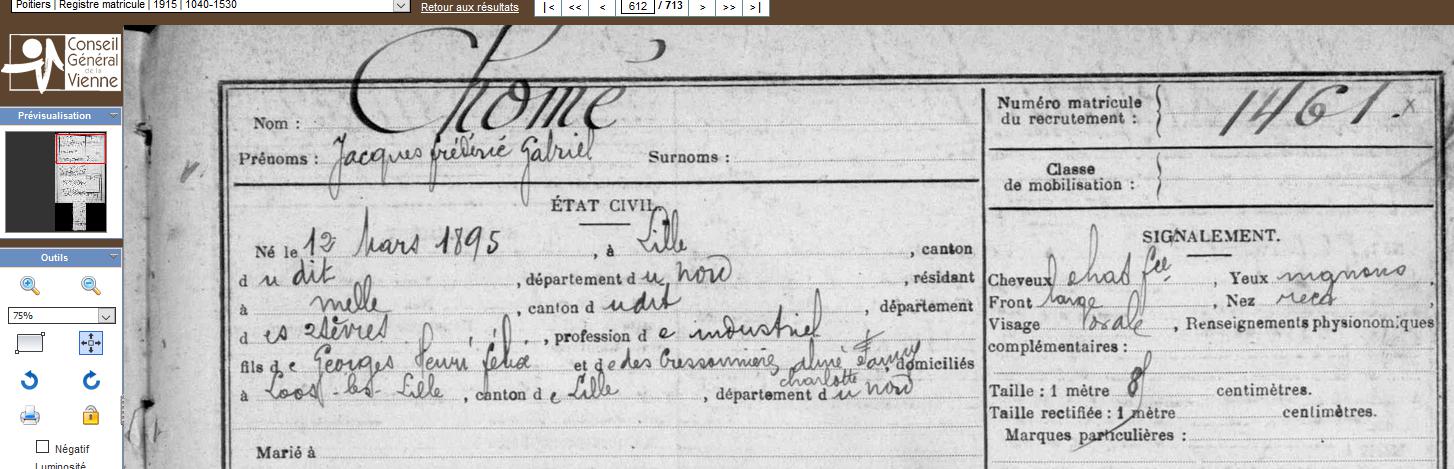 Poitiers | Registre matricule | 1915 | 1040-1530
Retour aux résultats
|< << < 612 / 713 > >> >|
Conseil
Général
de la
Vienne
Prévisualisation
Outils
75%
Négatif
Luminosité
Nom : Chomé
Prénoms : Jacques frédéric Gabriel Surnoms :
Numéro matricule
du recrutement : 1461.
Classe
de mobilisation :
ÉTAT CIVIL.
Né le 12 Mars 1895, à Lille, canton
d u dit, département d u nord, résidant
à melle, canton d udit, département
d es 2 sèvres, profession d e industriel
fils d e Georges Henri félix et d e des Cressonnières Fanny, domiciliés
charlotte
à Loos-les-Lille, canton d e Lille, département d u nord
Marié à
SIGNALEMENT.
Cheveux, Yeux
Front large, Nez
Visage, Renseignements physionomiques
complémentaires :
Taille : 1 mètre centimètres.
Taille rectifiée : 1 mètre centimètres.
Marques particulières :